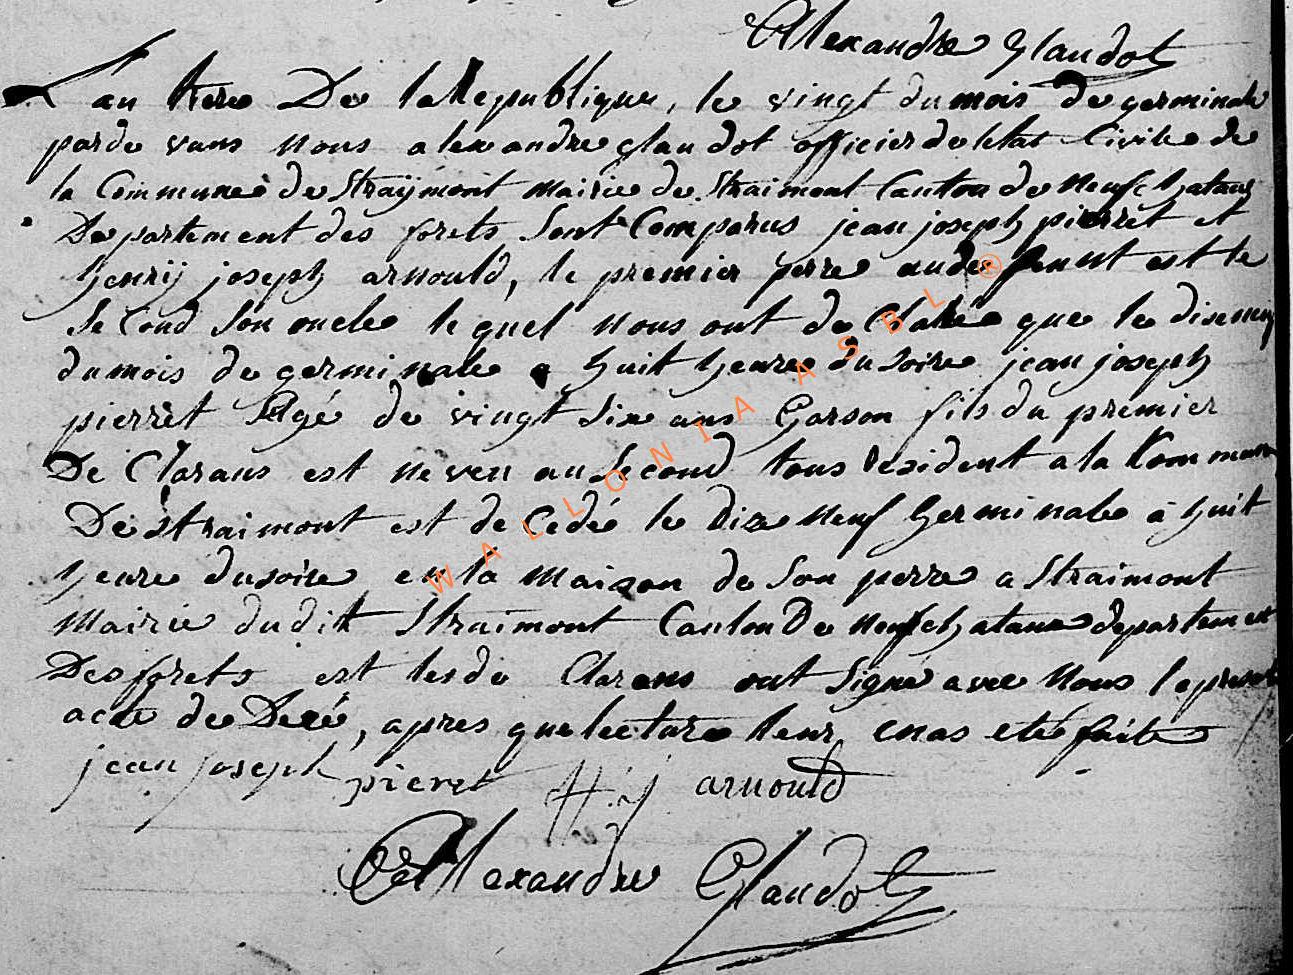 Alexandre Glaudot
L'an Xeme De la Republique, le vingt du mois de germinale
parde vans nous alexandre glaudot officier deletat Civile de
la Commune de Straÿmont mairie de Straimont Canton de neufchataux
Departement des forets Sont Comparus jean joseph pierret et
henrij joseph arnould, le premier perre au defunt est le
Second Son oncle le quel nous ont de Claré que le diseneuf
du mois de germinale a huit heure du soire jean joseph
pierret Agé de vingt Six ans Garson fils du premier
De Clarans est neveu au Second tous resident a la Kommune
De straimont est de Cedé le dize neuf Germinale à huit
heure du soire en la maison de Son perre a Straimont
mairie dudit Straimont Canton De neufchataux departement
Des forets est les de Clarans ont Signé avec nous le present
acte de Decé, apres que lecture leur enas eté faite
jean joseph pieret H. j arnould
Alexandre Glaudot
WALLONIA ASBL ®